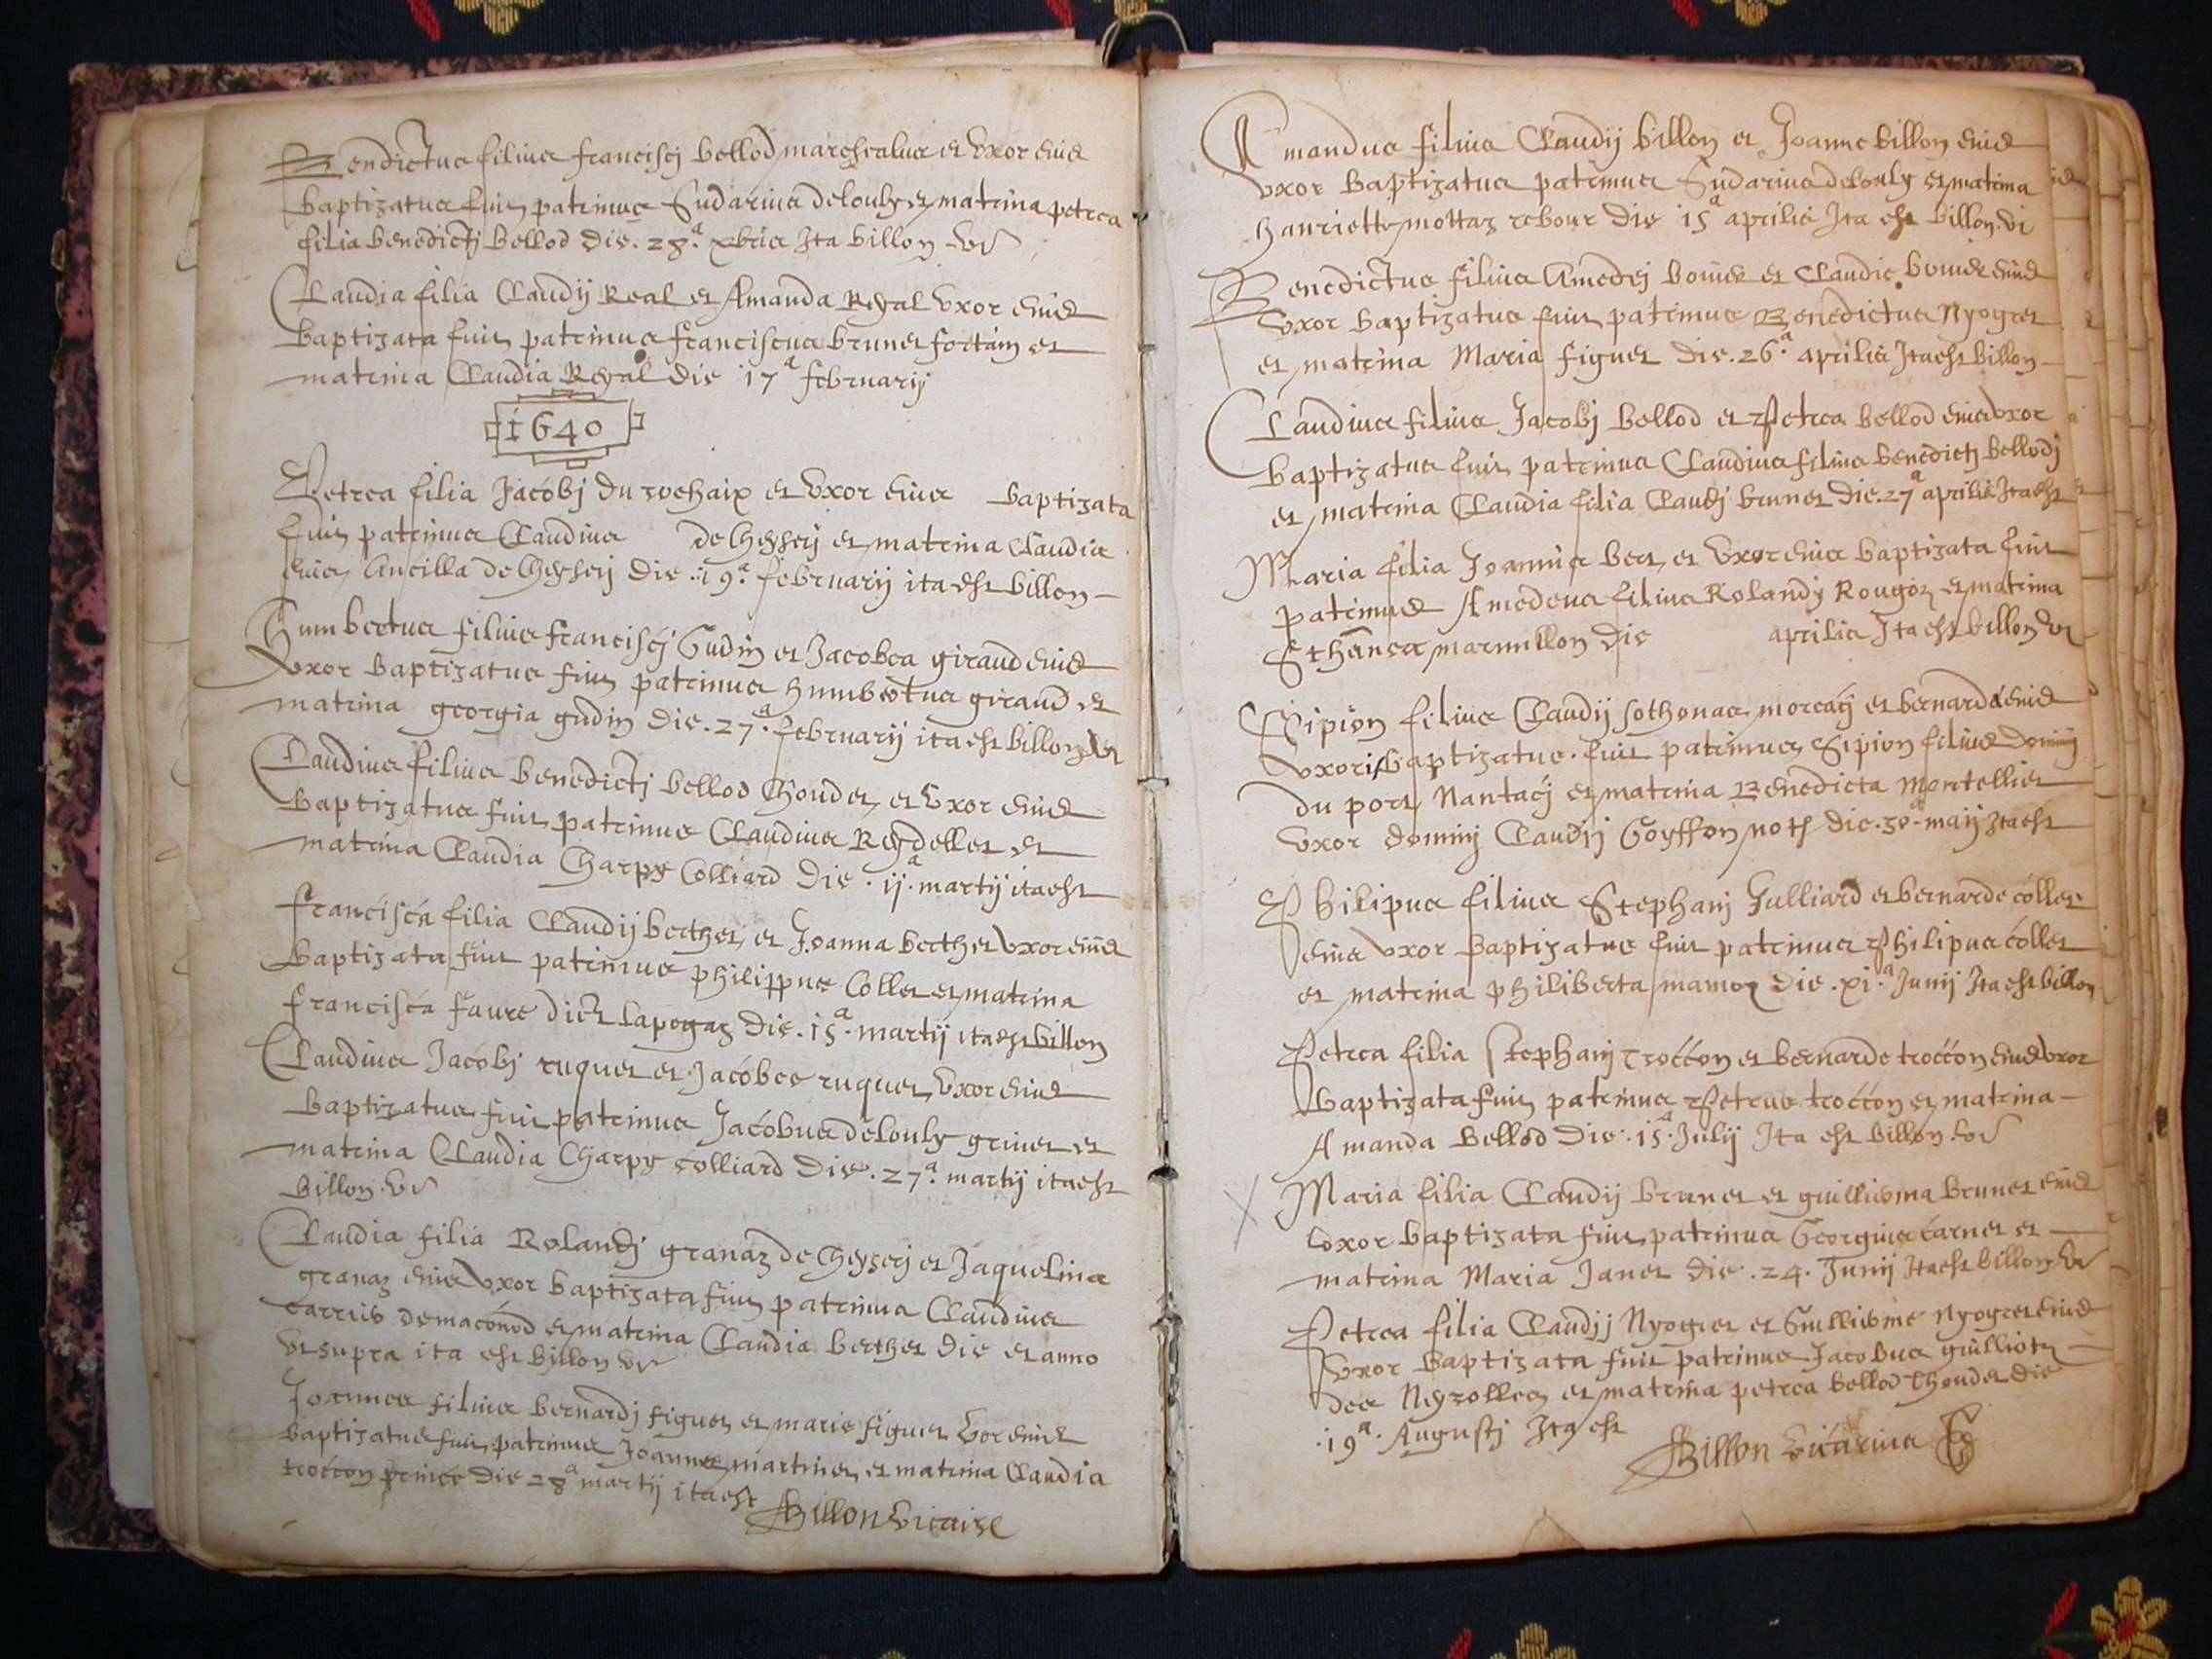 Benedictus filius francisci bellod mareschalus et uxor eius
baptizatus fuit patrinus Sudarius delouly et matrina petrea
filia benedicti bellod die . 28.a xbris Ita billon vi
Claudia filia Claudij Real et Amanda Reyal uxor eius
baptizata fuit patrinus franciscus brunet fortain et
matrina Claudia Reyal die 17a februarij
1640
Petrea filia Jacobj du rochaix et uxor eius baptizata
fuit patrinus Claudius de Cheysery et matrina Claudia
eius Ancilla de Cheyserj die .19.a februarij ita est billon
Humbertus filius francisci Gudin et Jacobea giraud eius
uxor baptizatus fuit patrinus humbertus giraud et
matrina georgia gudin die .27.a februarij ita est billon vi
Claudius filius benedictj bellod Choudet et uxor eius
baptizatus fuit patrinus Claudius Reydellet et
matrina Claudia Charpy Colliard die . ij.a martij ita est
francisca filia Claudij berthet et Joanna berthet uxor eius
baptizata fuit patrinus philippus Collet et matrina
francisca faure dict Lapegaz die .15.a martij ita est billon
Claudius Jacobj ruquet et Jacobee ruquet uxor eius
baptizatus fuit patrinus Jacobus delouly grinet et
matrina Claudia Charpy colliard die .27.a martij ita est
billon vi
Claudia filia Rolandj granaz de Cheyserj et Jaquelina
granaz eius uxor baptizata fuit patrinus Claudius
carrio demaconod et matrina Claudia berthet die et anno
ut supra ita est billon vi
Joannes filius bernardj figuet et marie figuet uxor eius
baptizatus fuit patrinus Joannes martinet et matrina Claudia
troccon die 28a martij ita est
Billon Vicaire
Amandus filius Claudij billon et Joanne billon eius
uxor baptizatus patrinus Sudarius delouly et matrina
hanriette mottaz rebour die 15a aprilis Ita est billon vi
Benedictus filius Amedej bouier et Claudie bouier eius
uxor baptizatus fuit patrinus Benedictus Nyogret
et matrina Maria figuet die .26.a aprilis Ita est billon
Claudius filius Jacobj bellod et Petrea bellod eius uxor
baptizatus fuit patrinus Claudius filius benedictj bellodj
et matrina Claudia filia Claudj brunet die .27a aprilis Ita est
Maria filia Joannis bert et uxor eius baptizata fuit
patrinus Amedeus filius Rolandj Rougoz et matrina
Sthanea marmillon die aprilis Ita est billon vi
Scipion filius Claudij sothonas morcacj et bernarda eius
uxoris baptizatus fuit patrinus Sipion filius dominj
du port Nantacj et matrina Benedicta Montellier
uxor dominj Claudij Goyffon not die .30.a maij Ita est
Philipus filius Stephanj Julliard et bernarde collet
eius uxor baptizatus fuit patrinus Philipus collet
et matrina philiberta mamoz die . xi.a Junij Ita est billon
Petrea filia Stephanj troccon et bernarde troccon eius uxor
baptizata fuit patrinus Petrus troccon et matrina
Amanda bellod die .15.a Julij Ita est billon vi
Maria filia Claudij brunet et guilliema brunet eius
uxor baptizata fuit patrinus Georgius carnet et
matrina Maria Janet die . 24. Junij Ita est billon vi
Petrea filia Claudij Nyogret et Guillieme Nyogret eius
uxor baptizata fuit patrinus Jacobus guilliot
des Neyrolles et matrina petrea bellod Choudet die
.19a. Augustj Ita est
Billon Vicarius